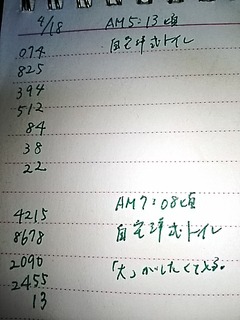 4/18 AM5:13頃
074 自宅洋式トイレ
825
394
512
84
38
22
AM7:08頃
4215
8678 自宅洋式トイレ
2090 「大」がしたくてよる。
2455
13